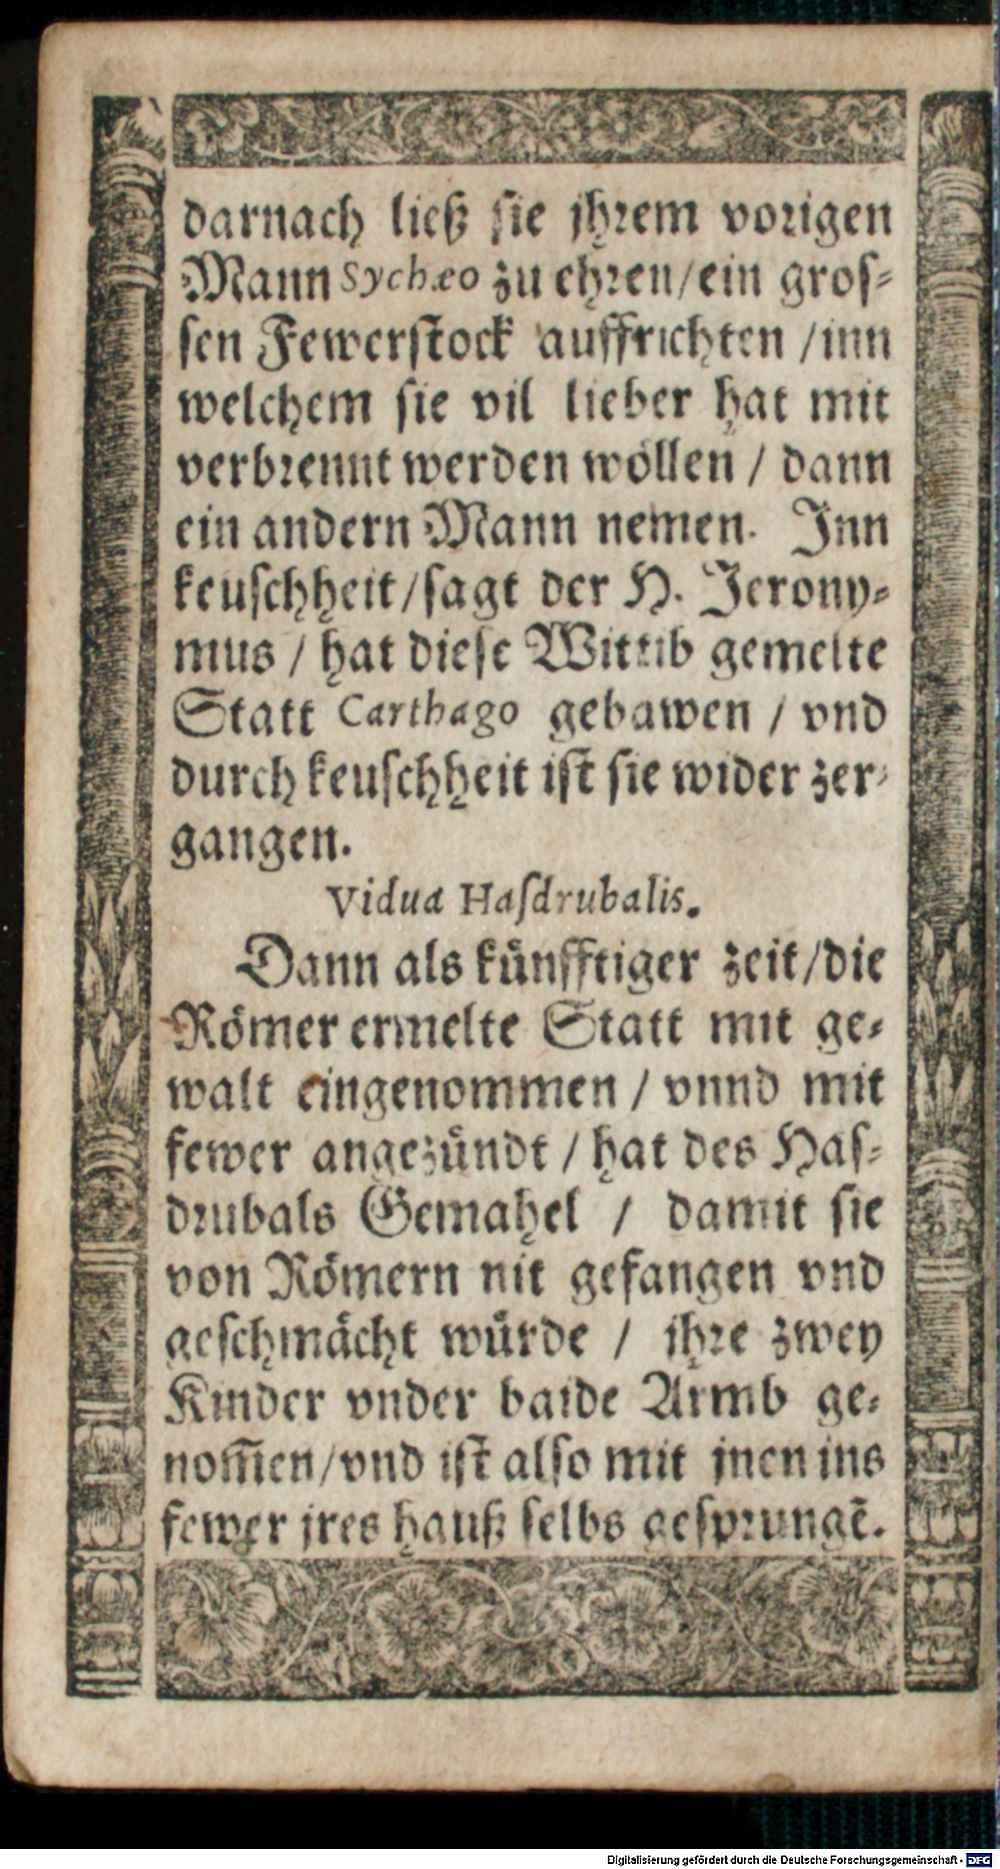 darnach ließ sie jhrem vorigen
Mann Sychæo zu ehren/ein gros-
sen Fewerstock auffrichten /inn
welchem sie vil lieber hat mit
verbrennt werden wöllen / dann
ein andern Mann nemen. Inn
keuschheit/sagt der H. Jerony-
mus / hat diese Wittib gemelte
Statt Carthago gebawen / vnd
durch keuschheit ist sie wider zer-
gangen.
Vidua Hasdrubalis.
Dann als künfftiger zeit/die
Römer ermelte Statt mit ge-
walt eingenommen / vnnd mit
fewer angezündt / hat des Has-
drubals Gemahel / damit sie
von Römern nit gefangen vnd
geschmächt würde / jhre zwey
Kinder vnder baide Armb ge-
nom̃en/vnd ist also mit jnen ins
fewer jres hauß selbs gesprungẽ.
Digitalisierung gefördert durch die Deutsche Forschungsgemeinschaft - DFG